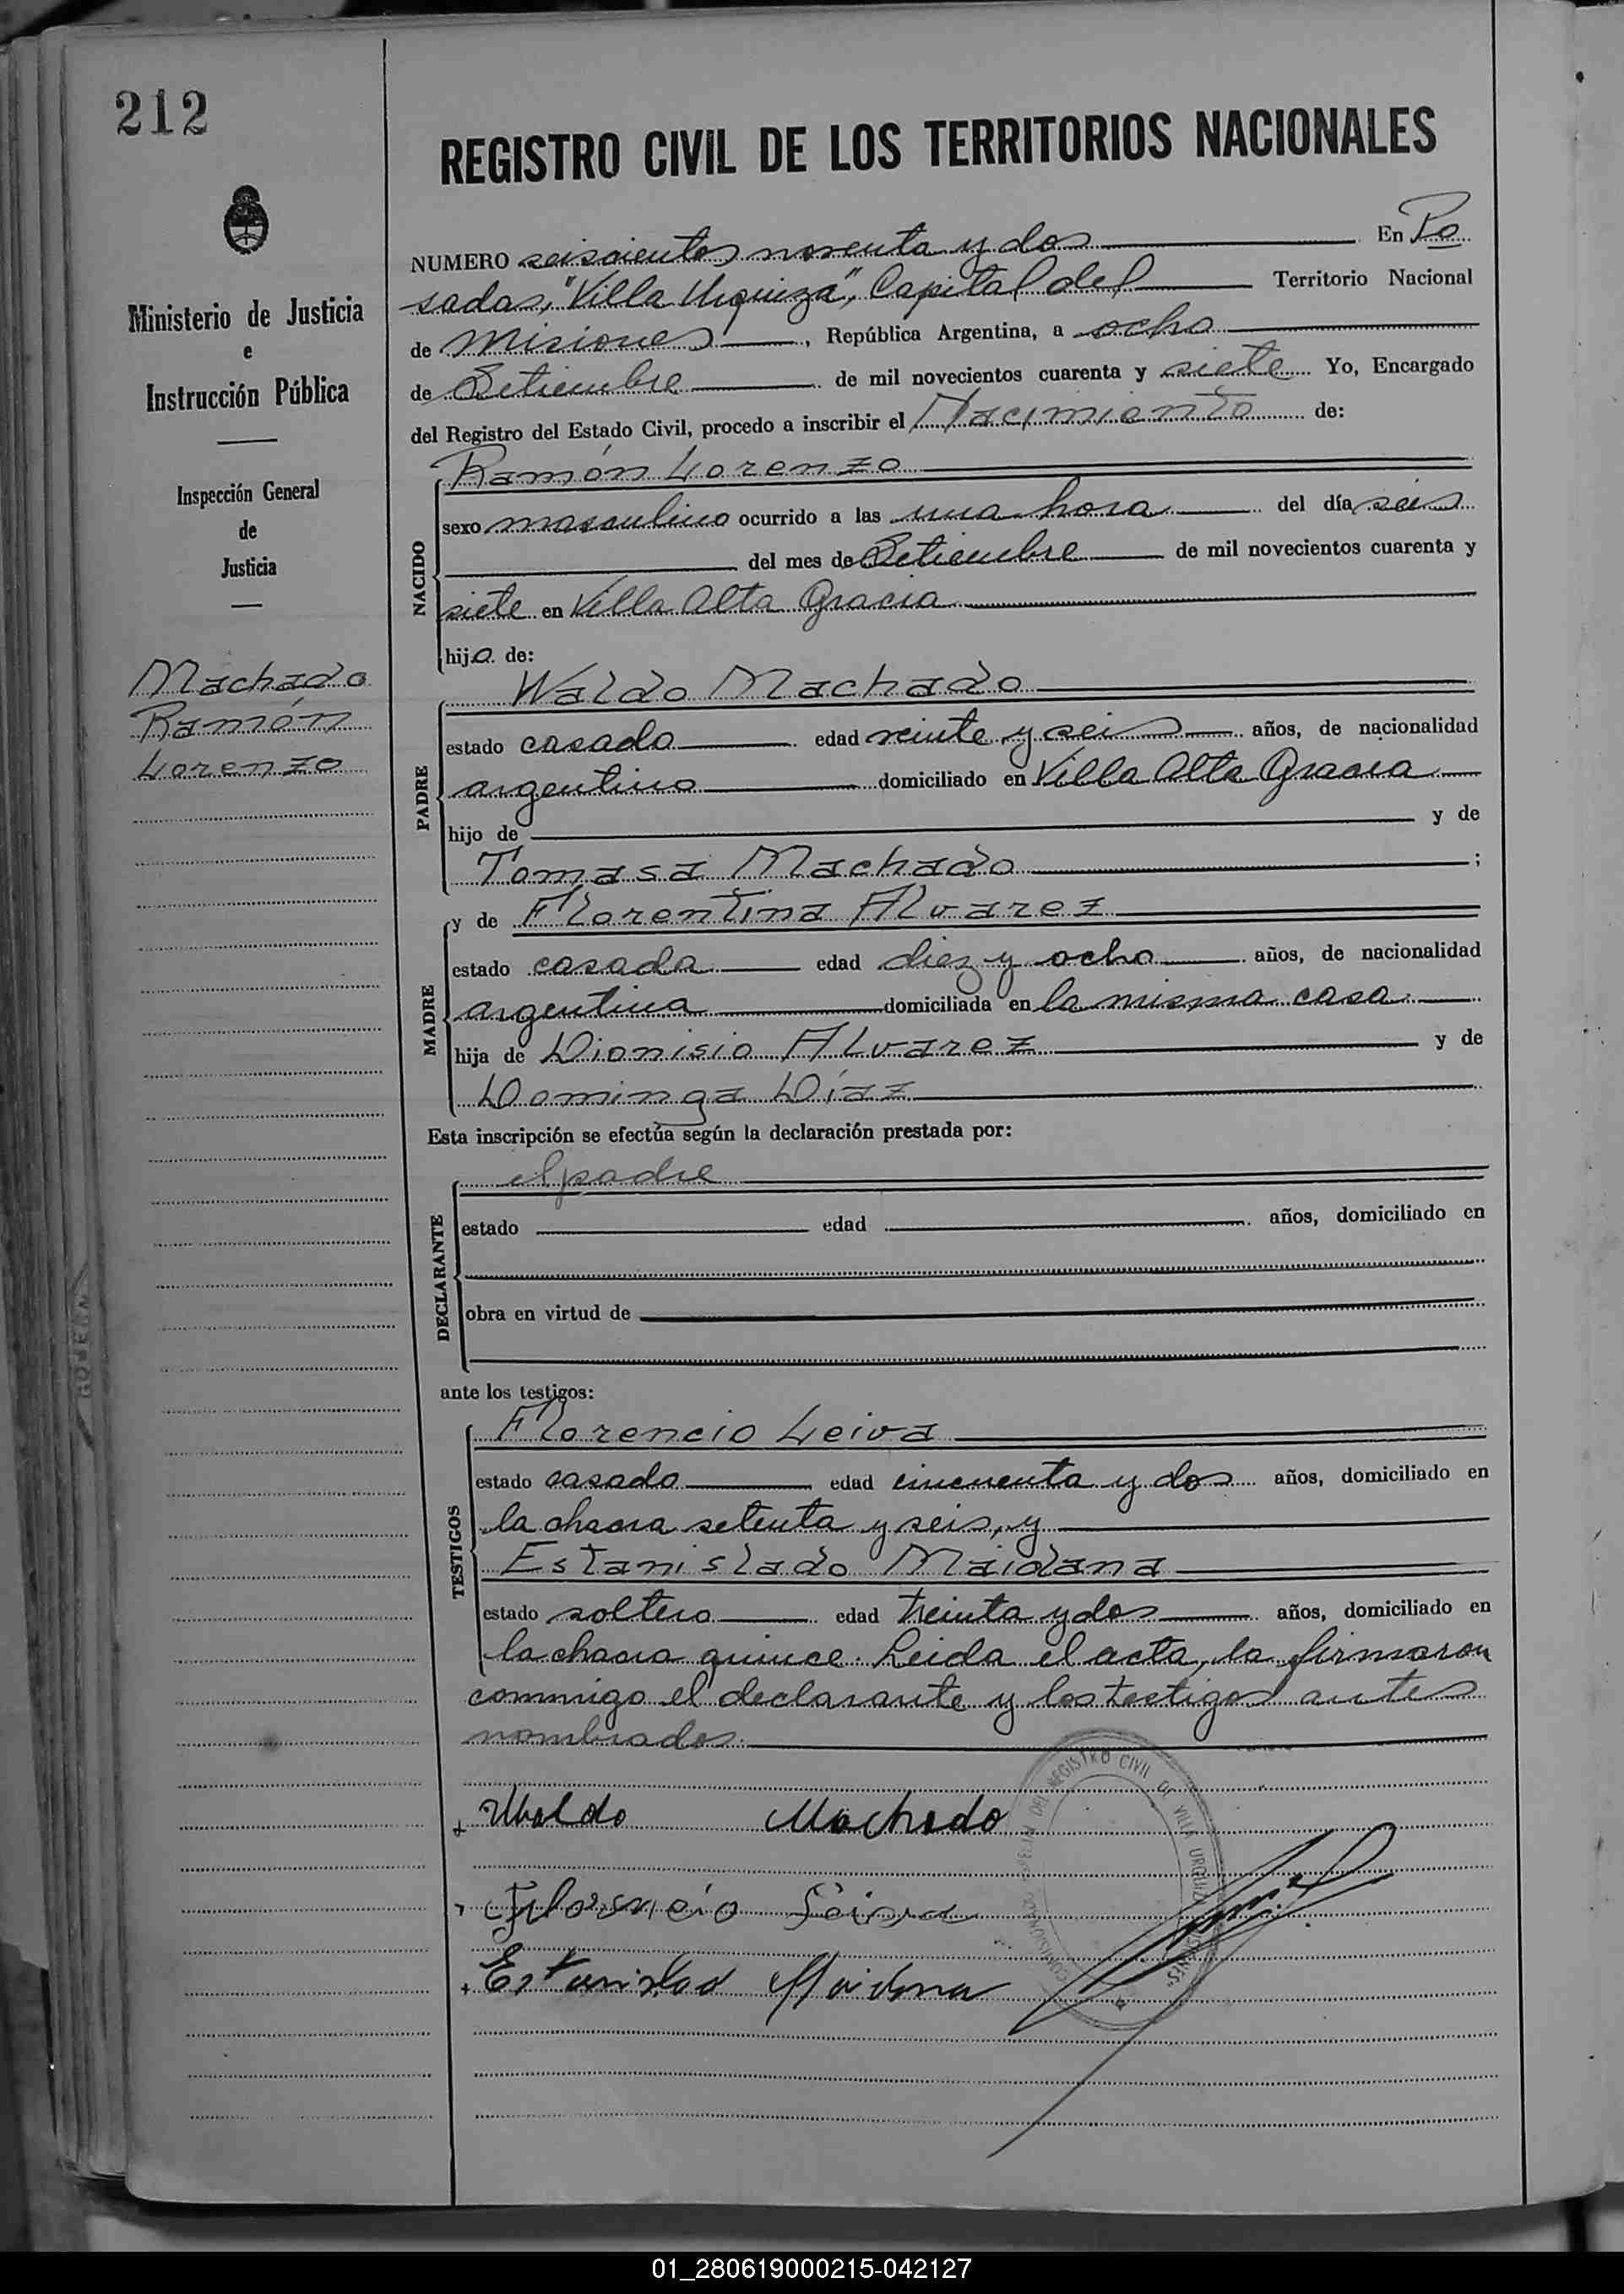 212
REGISTRO CIVIL DE LOS TERRITORIOS NACIONALES
Ministerio de Justicia
e
Instrucción Pública
Inspección General
de
Justicia
Machado
Ramón
Lorenzo
NUMERO seiscientos noventa y dos En Po
sadas, "Villa Urquiza", Capital del Territorio Nacional
de Misiones, República Argentina, a ocho
de Setiembre de mil novecientos cuarenta y siete Yo, Encargado
del Registro del Estado Civil, procedo a inscribir el Nacimiento de:
NACIDO
Ramón Lorenzo
sexo masculino ocurrido a las una hora del día seis
del mes de Setiembre de mil novecientos cuarenta y
siete en Villa Alta Gracia
hijo de:
PADRE
Waldo Machado
estado casado edad veinte y seis años, de nacionalidad
argentino domiciliado en Villa Alta Gracia
hijo de y de
Tomasa Machado ;
MADRE
y de Florentina Alvarez
estado casada edad diez y ocho años, de nacionalidad
argentina domiciliada en la misma casa
hija de Dionisio Alvarez y de
Dominga Díaz
Esta inscripción se efectúa según la declaración prestada por:
DECLARANTE
el padre
estado edad años, domiciliado en
obra en virtud de
ante los testigos:
TESTIGOS
Florencio Leiva
estado casado edad cincuenta y dos años, domiciliado en
la chacra setenta y seis, y
Estanislado Maidana
estado soltero edad treinta y dos años, domiciliado en
la chacra quince. Leida el acta, la firmaron
conmigo el declarante y los testigos antes
nombrados.
REGISTRO CIVIL DE VILLA URQUIZA
Waldo Machado
Florencio Leiva
Estanislad Maidana
01_280619000215-042127